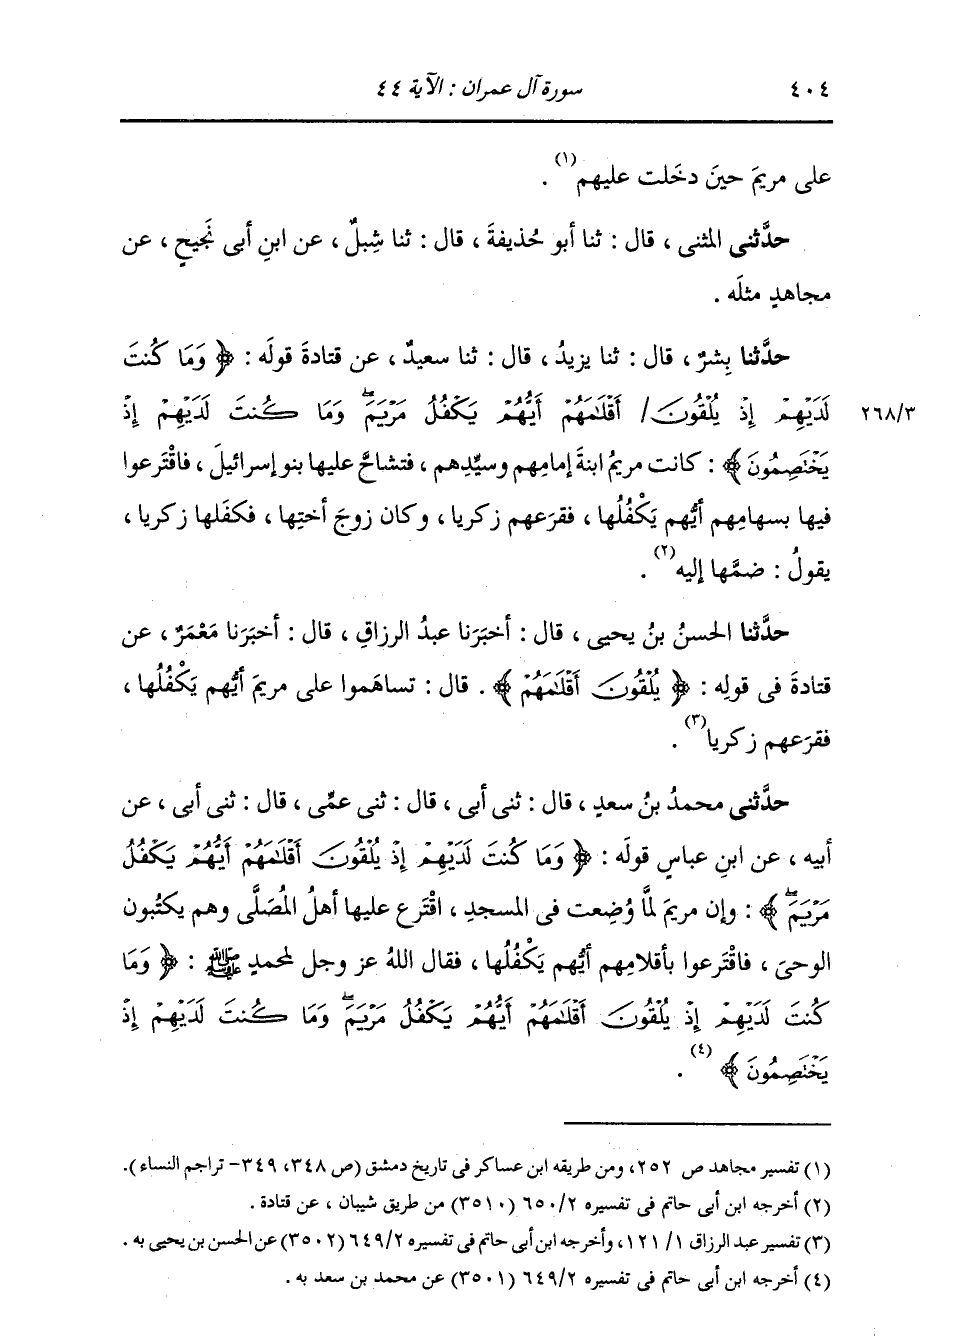 ٤٠٤ سورة آل عمران : الآية ٤٤
على مريمَ حينَ دخَلت عليهم(١) .
حدَّثني المثنى ، قال : ثنا أبو حُذيفةَ ، قال : ثنا شِبلٌ ، عن ابنِ أبى نَجيحٍ ، عن
مجاهدٍ مثلَه .
حدَّثنا بِشرٌ ، قال : ثنا يزيدُ ، قال : ثنا سعيدٌ ، عن قتادةَ قولَه : ﴿ وَمَا كُنتَ
لَدَيْهِمْ إِذْ يُلْقُونَ / أَقْلَٰمَهُمْ أَيُّهُمْ يَكْفُلُ مَرْيَمَ ۖ وَمَا كُنتَ لَدَيْهِمْ إِذْ ٢٦٨/٣
يَخْتَصِمُونَ ﴾ : كانت مريمُ ابنةَ إمامِهم وسيِّدِهم ، فتشاحَّ عليها بنو إسرائيلَ ، فاقْتَرعوا
فيها بسهامِهم أيُّهم يَكْفُلُها ، فقرَعهم زكريا ، وكان زوجَ أختِها ، فكفَلها زكريا ،
يقولُ : ضمَّها إليه(٢) .
حدَّثنا الحسنُ بنُ يحيى ، قال : أخبَرَنا عبدُ الرزاقِ ، قال : أخبَرَنا مَعْمَرٌ ، عن
قتادةَ فى قولِه : ﴿ يُلْقُونَ أَقْلَٰمَهُمْ ﴾ . قال : تساهَموا على مريمَ أيُّهم يَكْفُلُها ،
فقرَعهم زكريا(٣) .
حدَّثني محمدُ بنُ سعدٍ ، قال : ثنى أبى ، قال : ثنى عمِّى ، قال : ثنى أبى ، عن
أبيه ، عن ابنِ عباسٍ قولَه : ﴿ وَمَا كُنتَ لَدَيْهِمْ إِذْ يُلْقُونَ أَقْلَٰمَهُمْ أَيُّهُمْ يَكْفُلُ
مَرْيَمَ ۖ ﴾ : وإن مريمَ لمَّا وُضِعت فى المسجدِ ، اقْتَرع عليها أهلُ المُصَلَّى وهم يكتُبون
الوحىَ ، فاقْتَرعوا بأقلامِهم أيُّهم يَكْفُلُها ، فقال اللهُ عز وجل لمحمدٍ ﷺ : ﴿ وَمَا
كُنتَ لَدَيْهِمْ إِذْ يُلْقُونَ أَقْلَٰمَهُمْ أَيُّهُمْ يَكْفُلُ مَرْيَمَ ۖ وَمَا كُنتَ لَدَيْهِمْ إِذْ
يَخْتَصِمُونَ ﴾(٤) .
(١) تفسير مجاهد ص ٢٥٢، ومن طريقه ابن عساكر فى تاريخ دمشق (ص ٣٤٨، ٣٤٩- تراجم النساء).
(٢) أخرجه ابن أبى حاتم فى تفسيره ٦٥٠/٢ (٣٥١٠) من طريق شيبان ، عن قتادة .
(٣) تفسير عبد الرزاق ١/ ١٢١، وأخرجه ابن أبى حاتم فى تفسيره ٦٤٩/٢ (٣٥٠٢) عن الحسن بن يحيى به .
(٤) أخرجه ابن أبى حاتم فى تفسيره ٦٤٩/٢ (٣٥٠١) عن محمد بن سعد به .